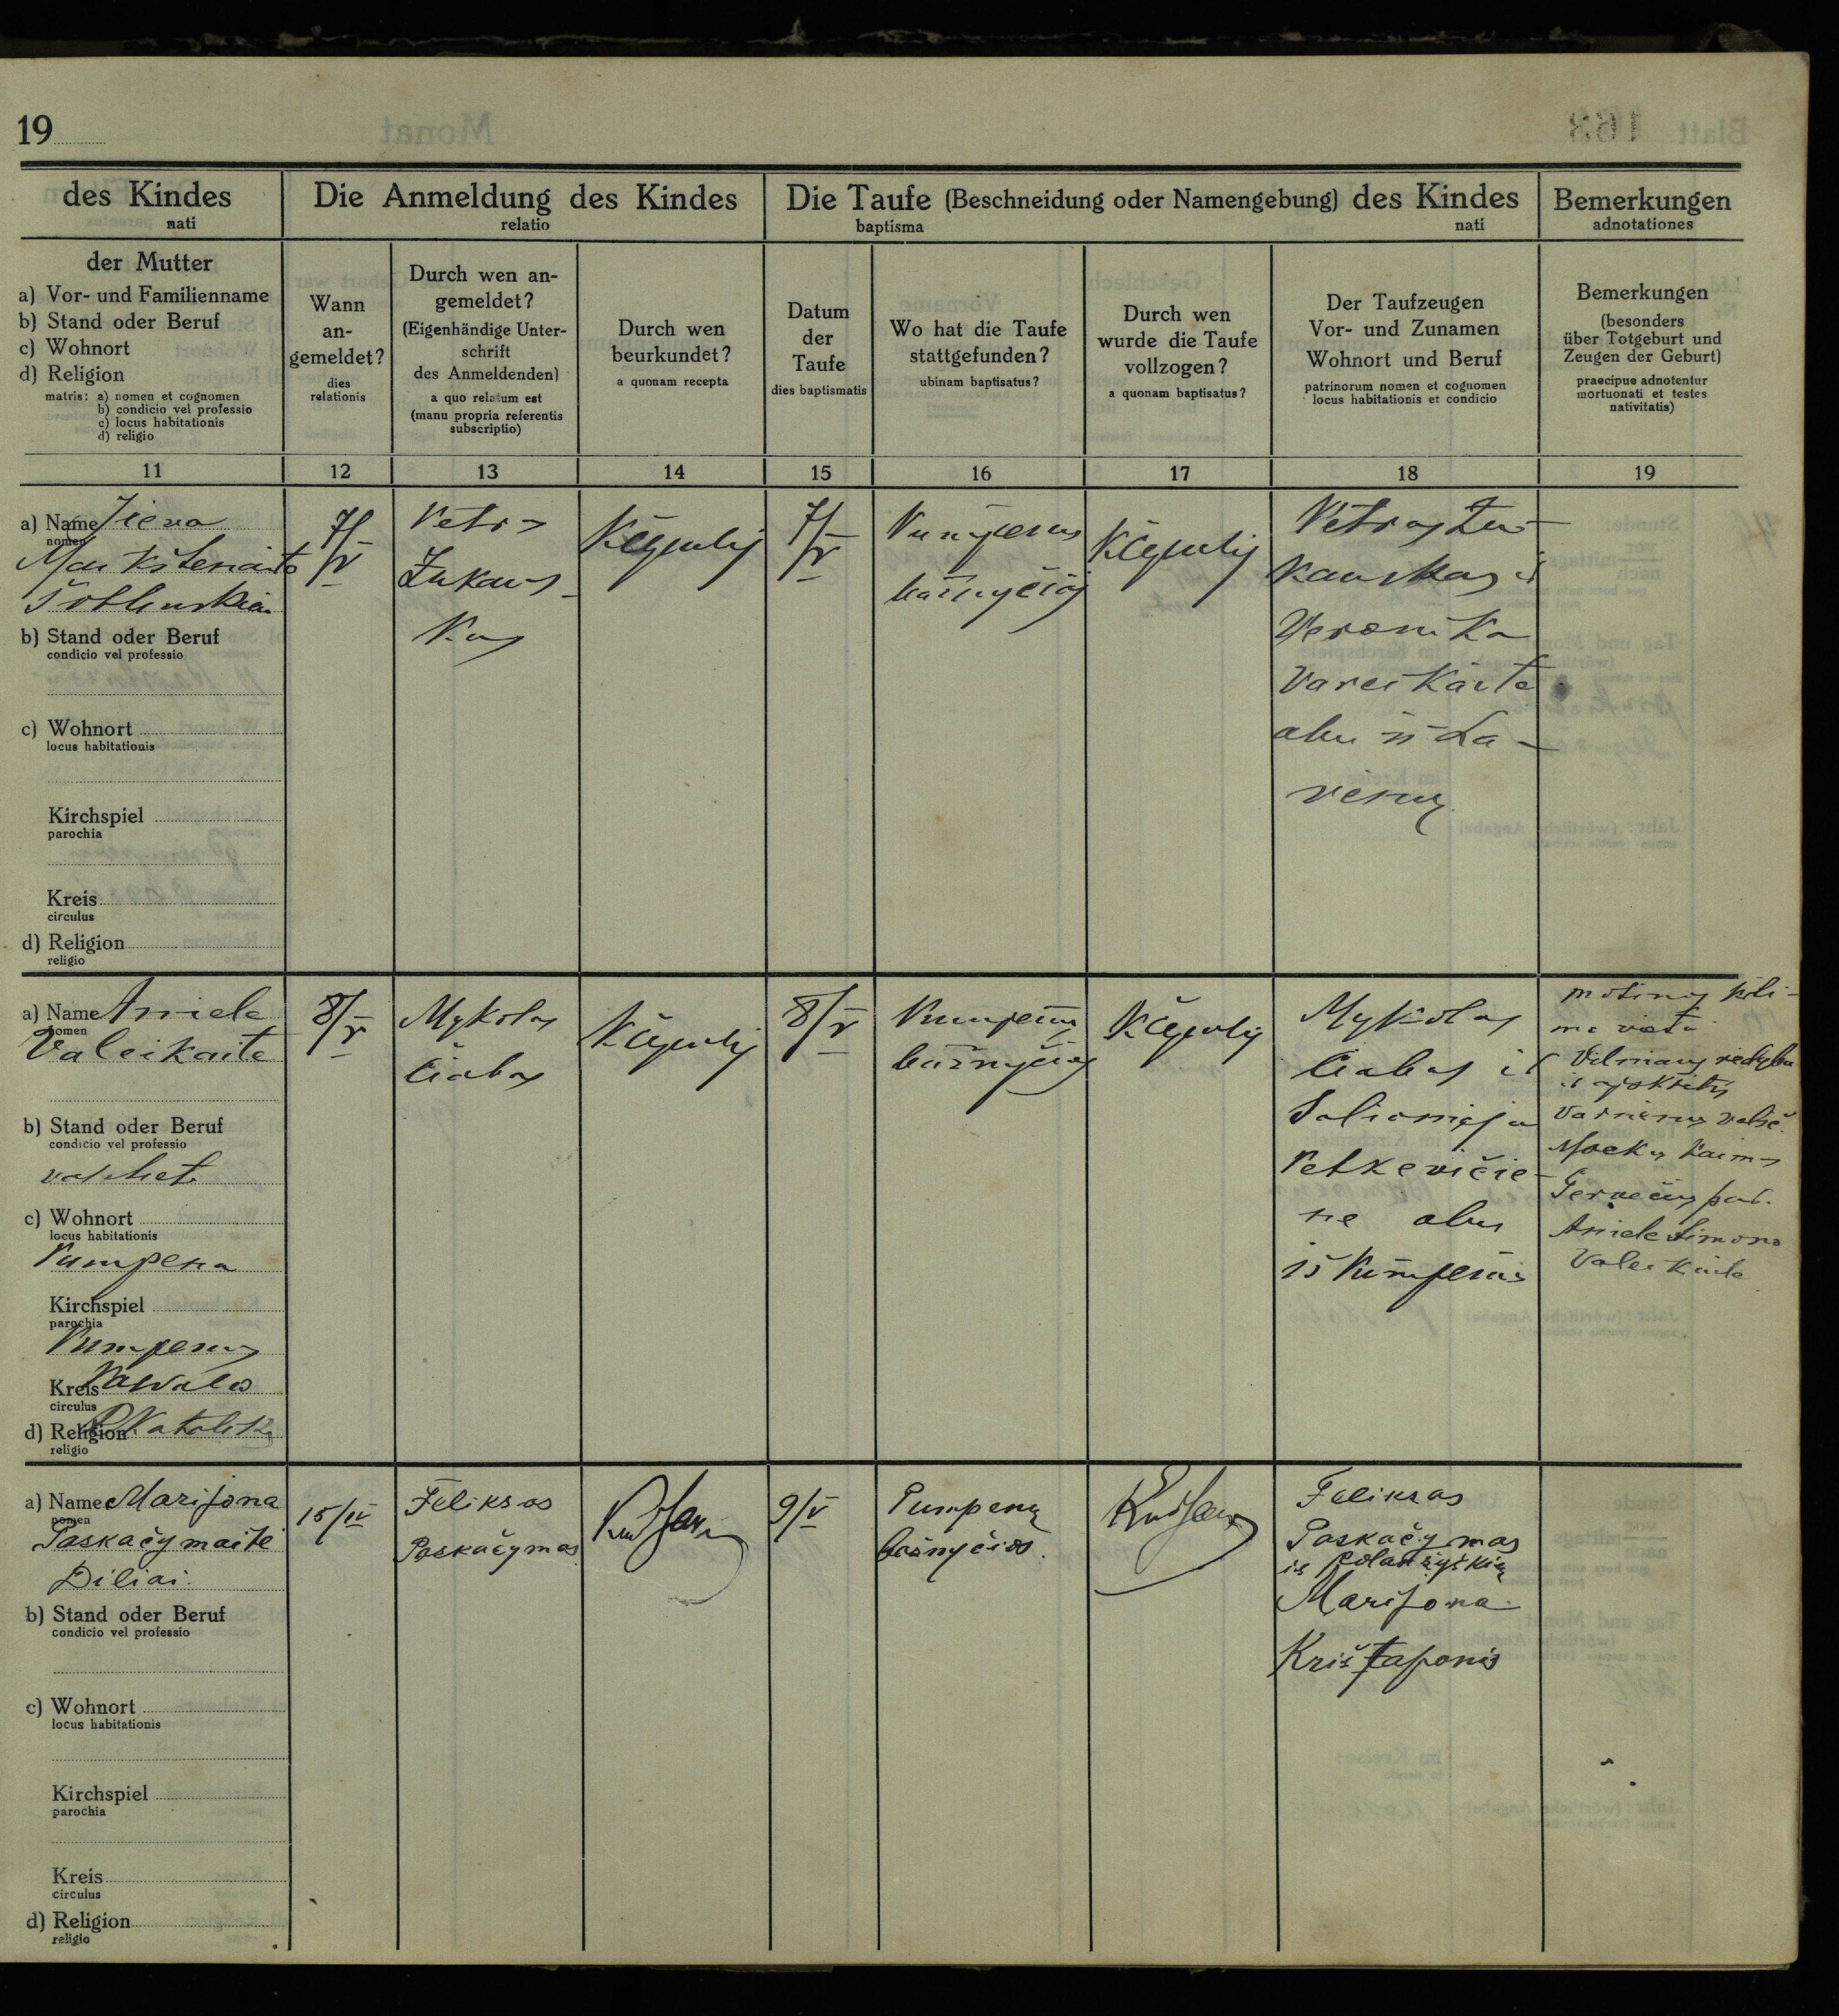 19
des Kindes
nati
Die Anmeldung des Kindes
relatio
Die Taufe (Beschneidung oder Namengebung) des Kindes
baptisma nati
Bemerkungen
adnotationes
der Mutter
a) Vor- und Familienname
b) Stand oder Beruf
c) Wohnort
d) Religion
matris: a) nomen et cognomen
b) condicio vel professio
c) locus habitationis
d) religio
Wann
an-
gemeldet?
dies
relationis
Durch wen an-
gemeldet?
(Eigenhändige Unter-
schrift
des Anmeldenden)
a quo relatum est
(manu propria referentis
subscriptio)
Durch wen
beurkundet?
a quonam recepta
Datum
der
Taufe
dies baptismatis
Wo hat die Taufe
stattgefunden?
ubinam baptisatus?
Durch wen
wurde die Taufe
vollzogen?
a quonam baptisatus?
Der Taufzeugen
Vor- und Zunamen
Wohnort und Beruf
patrinorum nomen et cognomen
locus habitationis et condicio
Bemerkungen
(besonders
über Totgeburt und
Zeugen der Geburt)
praecipue adnotentur
mortuonati et testes
nativitatis)
11 12 13 14 15 16 17 18 19
a) Name
nomen
b) Stand oder Beruf
condicio vel professio
c) Wohnort
locus habitationis
Kirchspiel
parochia
Kreis
circulus
d) Religion
religio
7/V
Petras
Žukaus-
kas
7/V
Pumpėnų
bažnyčioj
Petras Žu-
kauskas ir
Veronika
Vareikaitė
abu iš La-
vėnų
a) Name Aniele
nomen
Valeikaite
b) Stand oder Beruf
condicio vel professio
c) Wohnort
locus habitationis
Pumpenai
Kirchspiel
parochia
Pumpenų
Kreis
circulus
d) Religion R Katalikų
religio
8/V
Mykolas
Čiabas
8/V
Pumpėnų
bažnyčioj
Mykolas
Čiabas ir
Saliomėja
Petkevičie-
ne abu
iš Pumpėnų
motinos kili-
mo vieta
Vilniaus
apskritis
valsč.
kaimas
Gervečių par.
Aniele Simono
Valeikaite
a) Name Marijona
nomen
Paskačymaitė
Diliai.
b) Stand oder Beruf
condicio vel professio
c) Wohnort
locus habitationis
Kirchspiel
parochia
Kreis
circulus
d) Religion
religio
15/IV
Feliksas
Paskačymas
9/V
Pumpenų
bažnyčios.
Feliksas
Paskačymas
Marijona
Krištaponis